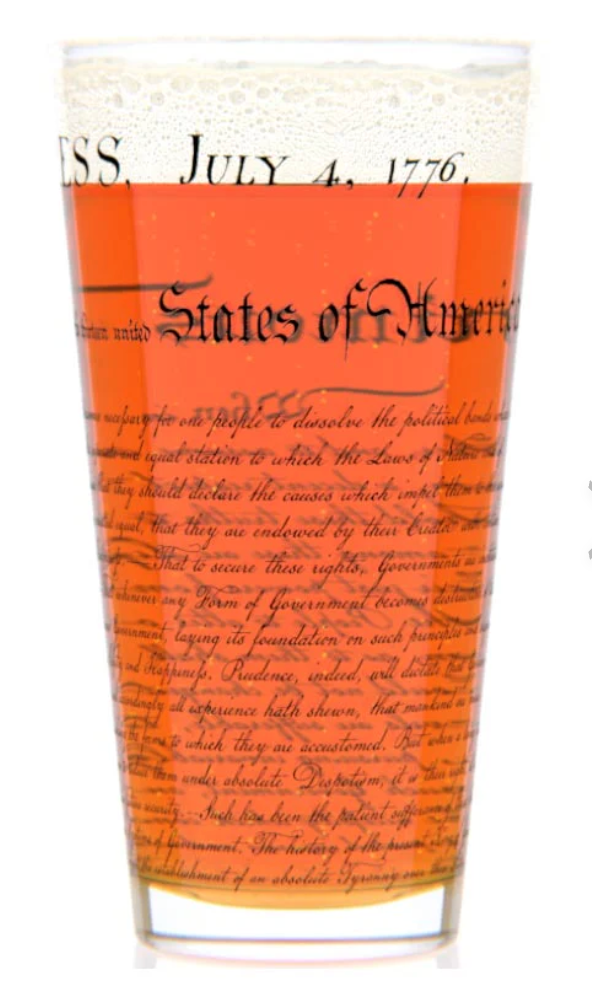 ESS, JULY 4, 1776.
united States of America
necessary for one people to dissolve the political bands
and equal station to which the Laws of Nature
they should declare the causes which impel them to
equal, that they are endowed by their Creator
That to secure these rights, Governments
whenever any Form of Government becomes destructive
laying its foundation on such principles and
and Happiness. Prudence, indeed, will dictate that
all experience hath shewn, that mankind
to which they are accustomed. But when a
them under absolute Despotism, it is their
security. — Such has been the patient sufferance
of Government. The history of the present
establishment of an absolute Tyranny over